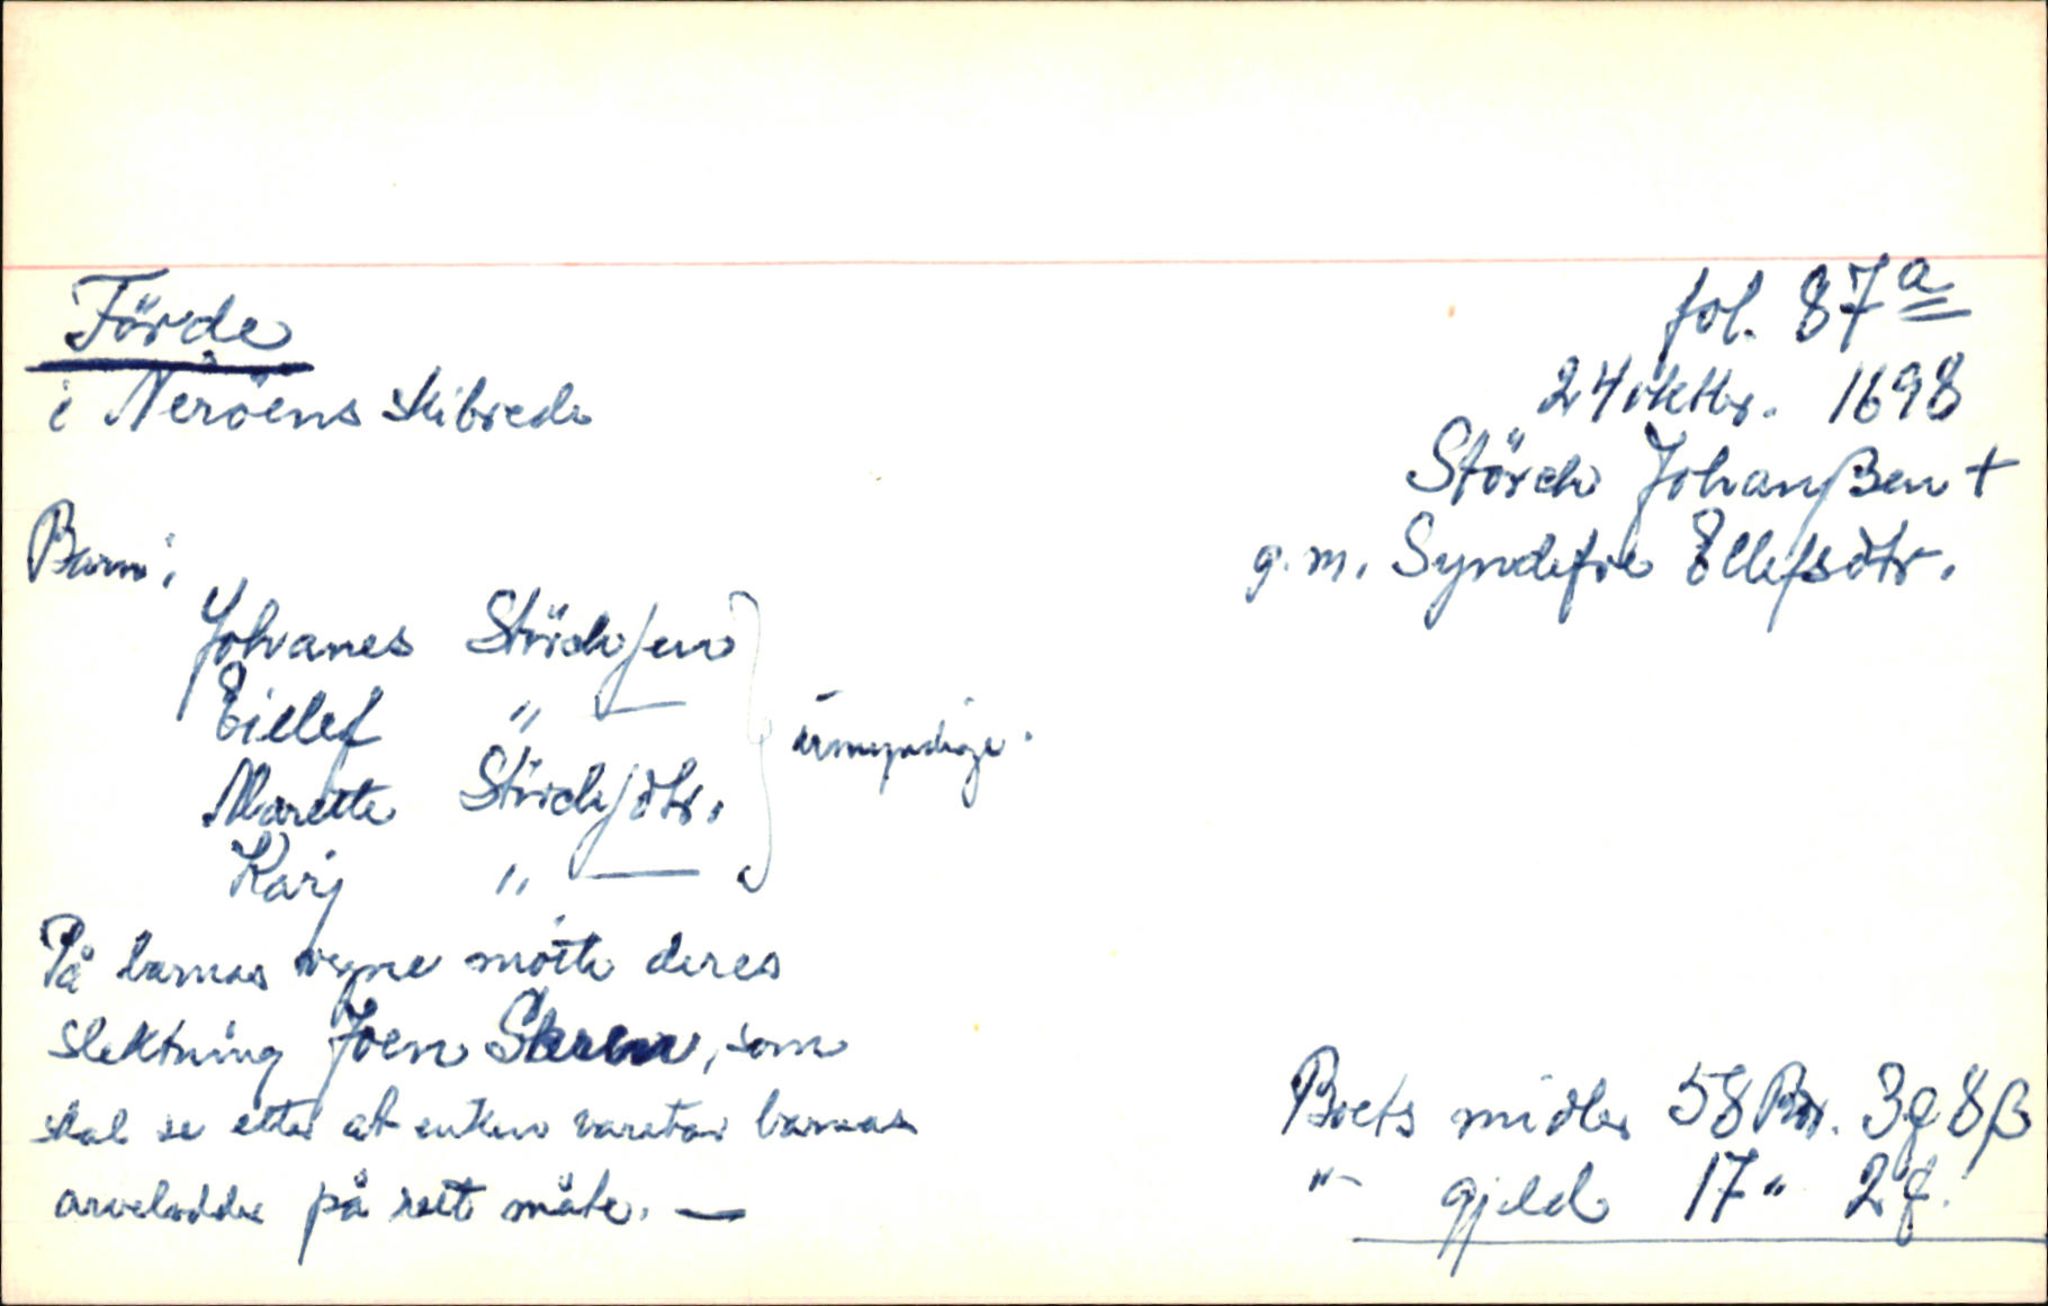 Förde
i Neröens skibrede
fol. 87a
24 oktbr. 1698
Störch Johanßen +
g. m. Syndefre Ellefsdtr.
Barn:
Johanes Störchsen
Eilef " —
Marette Störchsdtr.
Karj " —
umyndige.
På barnas vegne mötte deres
slektning Joen Skren, som
skal se etter at enken varetar barnas
arvelodder på rett måte. —
Boets midler 58 Rdr. 3 ʠ 8 ß
"- gjeld 17 " 2 ʠ.